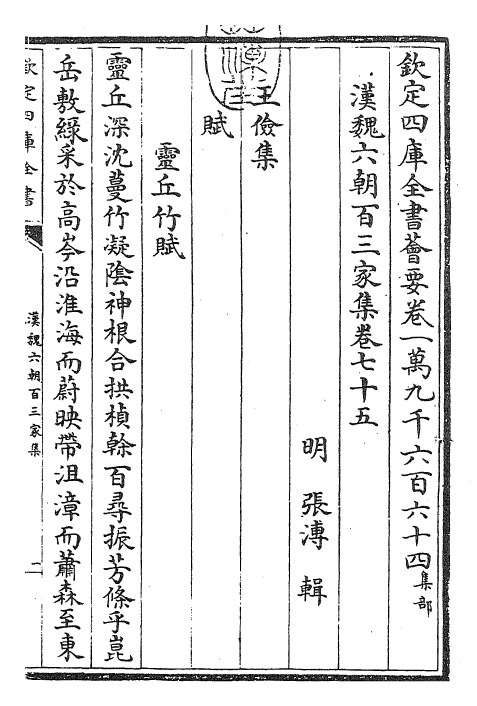 欽定四庫全書薈要卷一萬九千六百六十四集部
漢魏六朝百三家集卷七十五
明 張溥 輯
王儉集
賦
靈丘竹賦
靈丘深沈蔓竹凝陰神根合拱楨榦百尋振芳條乎崑
岳敷綠采於高岑沿淮海而蔚映帶沮漳而蕭森至東
欽定四庫全書
漢魏六朝百三家集
二